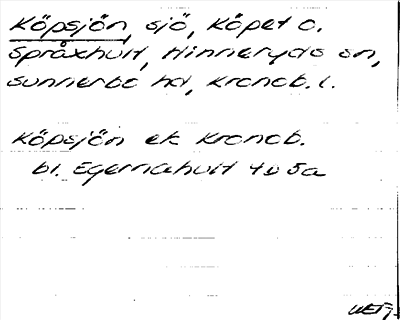 Köpsjön, sjö, Köpet o.
Språxhult, Hinneryds sn,
Sunnerbo hd, Kronob. l.
Köpsjön ek Kronob.
bl. Egernahult 4D 5a